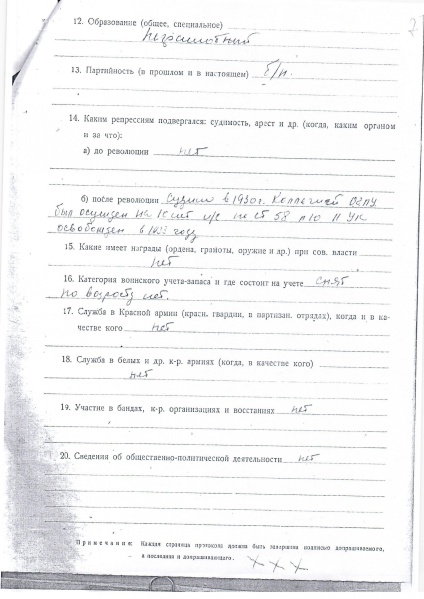 2
12. Образование (общее, специальное)
неграмотный
13. Партийность (в прошлом и в настоящем) б/п.
14. Каким репрессиям подвергался: судимость, арест и др. (когда, каким органом
и за что):
а) до революции нет
б) после революции Судим в 1930г. Коллегией ОГПУ
был осужден на 10 лет по ст 58 п 10 11 УК
освобожден в году
15. Какие имеет награды (ордена, грамоты, оружие и др.) при сов. власти
нет
16. Категория воинского учета-запаса и где состоит на учете снят
по возрасту лет.
17. Служба в Красной армии (красн. гвардии, в партизан. отрядах), когда и в ка-
честве кого нет
18. Служба в белых и др. к-р. армиях (когда, в качестве кого)
нет
19. Участие в бандах, к-р. организациях и восстаниях нет
20. Сведения об общественно-политической деятельности нет
Примечание: Каждая страница протокола должна быть заверена подписью допрашиваемого,
а последняя и допрашивающего.
× × ×